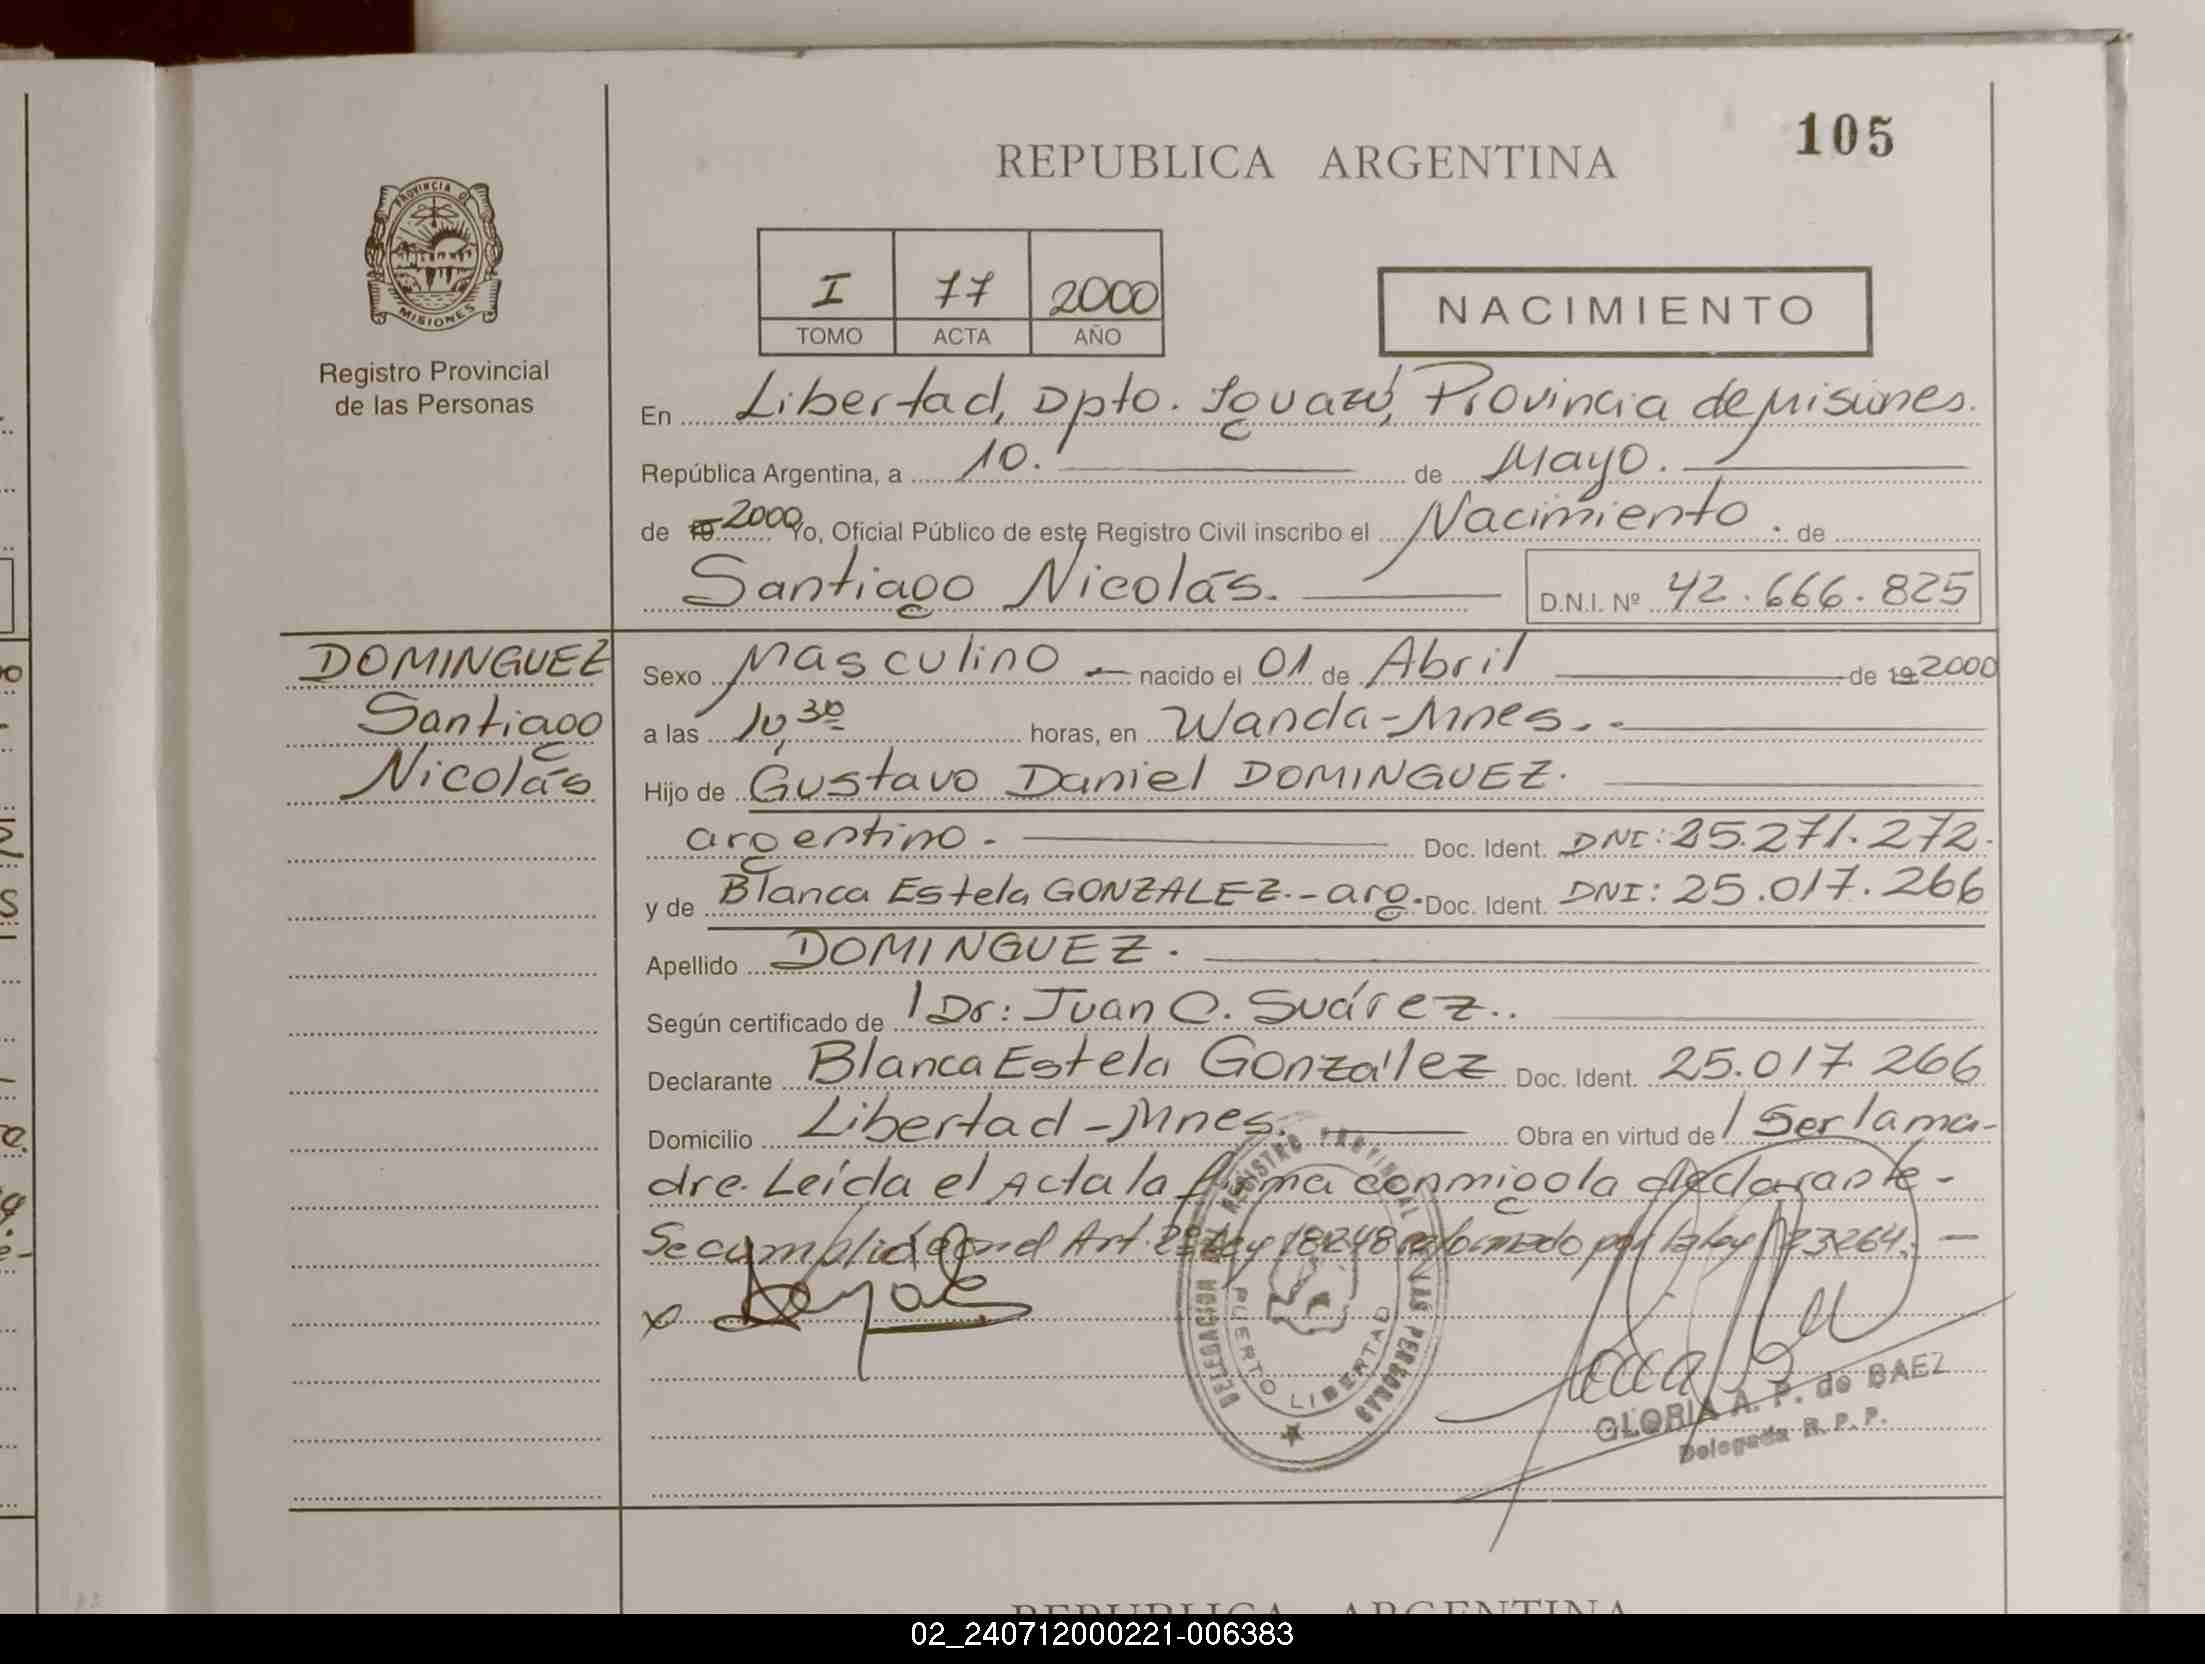 105
REPUBLICA ARGENTINA
PROVINCIA DE
MISIONES
Registro Provincial
de las Personas
I 77 2000
TOMO ACTA AÑO
NACIMIENTO
En Libertad, Dpto. Iguazú, Provincia de Misiones.
República Argentina, a 10. de Mayo.
de 19 2000 Yo, Oficial Público de este Registro Civil inscribo el Nacimiento. de
Santiago Nicolás. D.N.I. Nº 42.666.825
DOMINGUEZ
Santiago
Nicolás
Sexo Masculino - nacido el 01 de Abril de 19 2000
a las 10,30 horas, en Wanda-Mnes.-
Hijo de Gustavo Daniel DOMINGUEZ.
argentino. Doc. Ident. DNI: 25.271.272.
y de Blanca Estela GONZALEZ.- arg. Doc. Ident. DNI: 25.017.266
Apellido DOMINGUEZ.
Según certificado de Dr: Juan C. Suárez..
Declarante Blanca Estela González Doc. Ident. 25.017.266
Domicilio Libertad-Mnes. Obra en virtud de Ser la ma-
dre. Leída el Acta la firma conmigo la declarante-
Se cumplió con el Art. 2º Ley 18248 reformado por la ley 23264.-
x
DELEGACION DEL REGISTRO PROVINCIAL DE LAS PERSONAS
PUERTO LIBERTAD
GLORIA A. P. de BAEZ
Delegada R. P. P.
REPUBLICA ARGENTINA
02_240712000221-006383